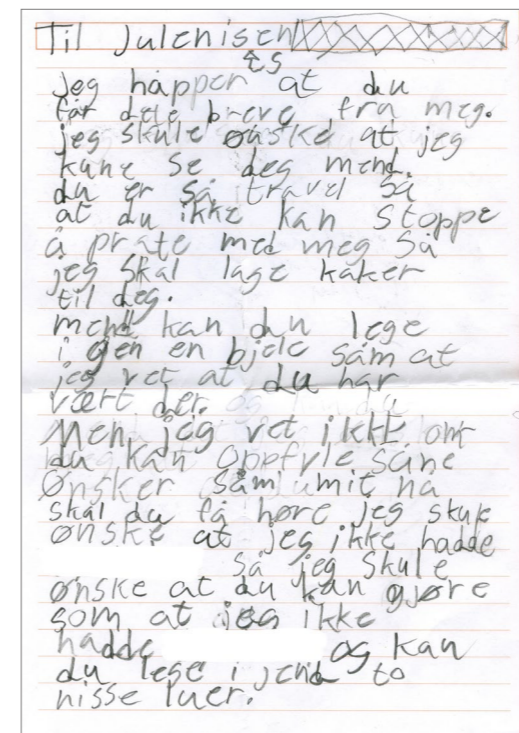 Til Julenisen
jeg håpper at du
får dete breve fra meg.
jeg skule ønske at jeg
kune se deg mend.
du er så travel så
at du ikke kan stoppe
å prate med meg så
jeg skal lage kaker
til deg.
mend kan du lege
i gjen en bjele sam at
jeg vet at du har
vært der.
Men, jeg vet ikke om
du kan oppfyle sane
Ønsker såm
skal du få høre jeg skule
ønske at jeg ikke hadde
så jeg skule
ønske at du kan gjøre
som at jeg ikke
hadde og kan
du lege i jend to
nisse luer.